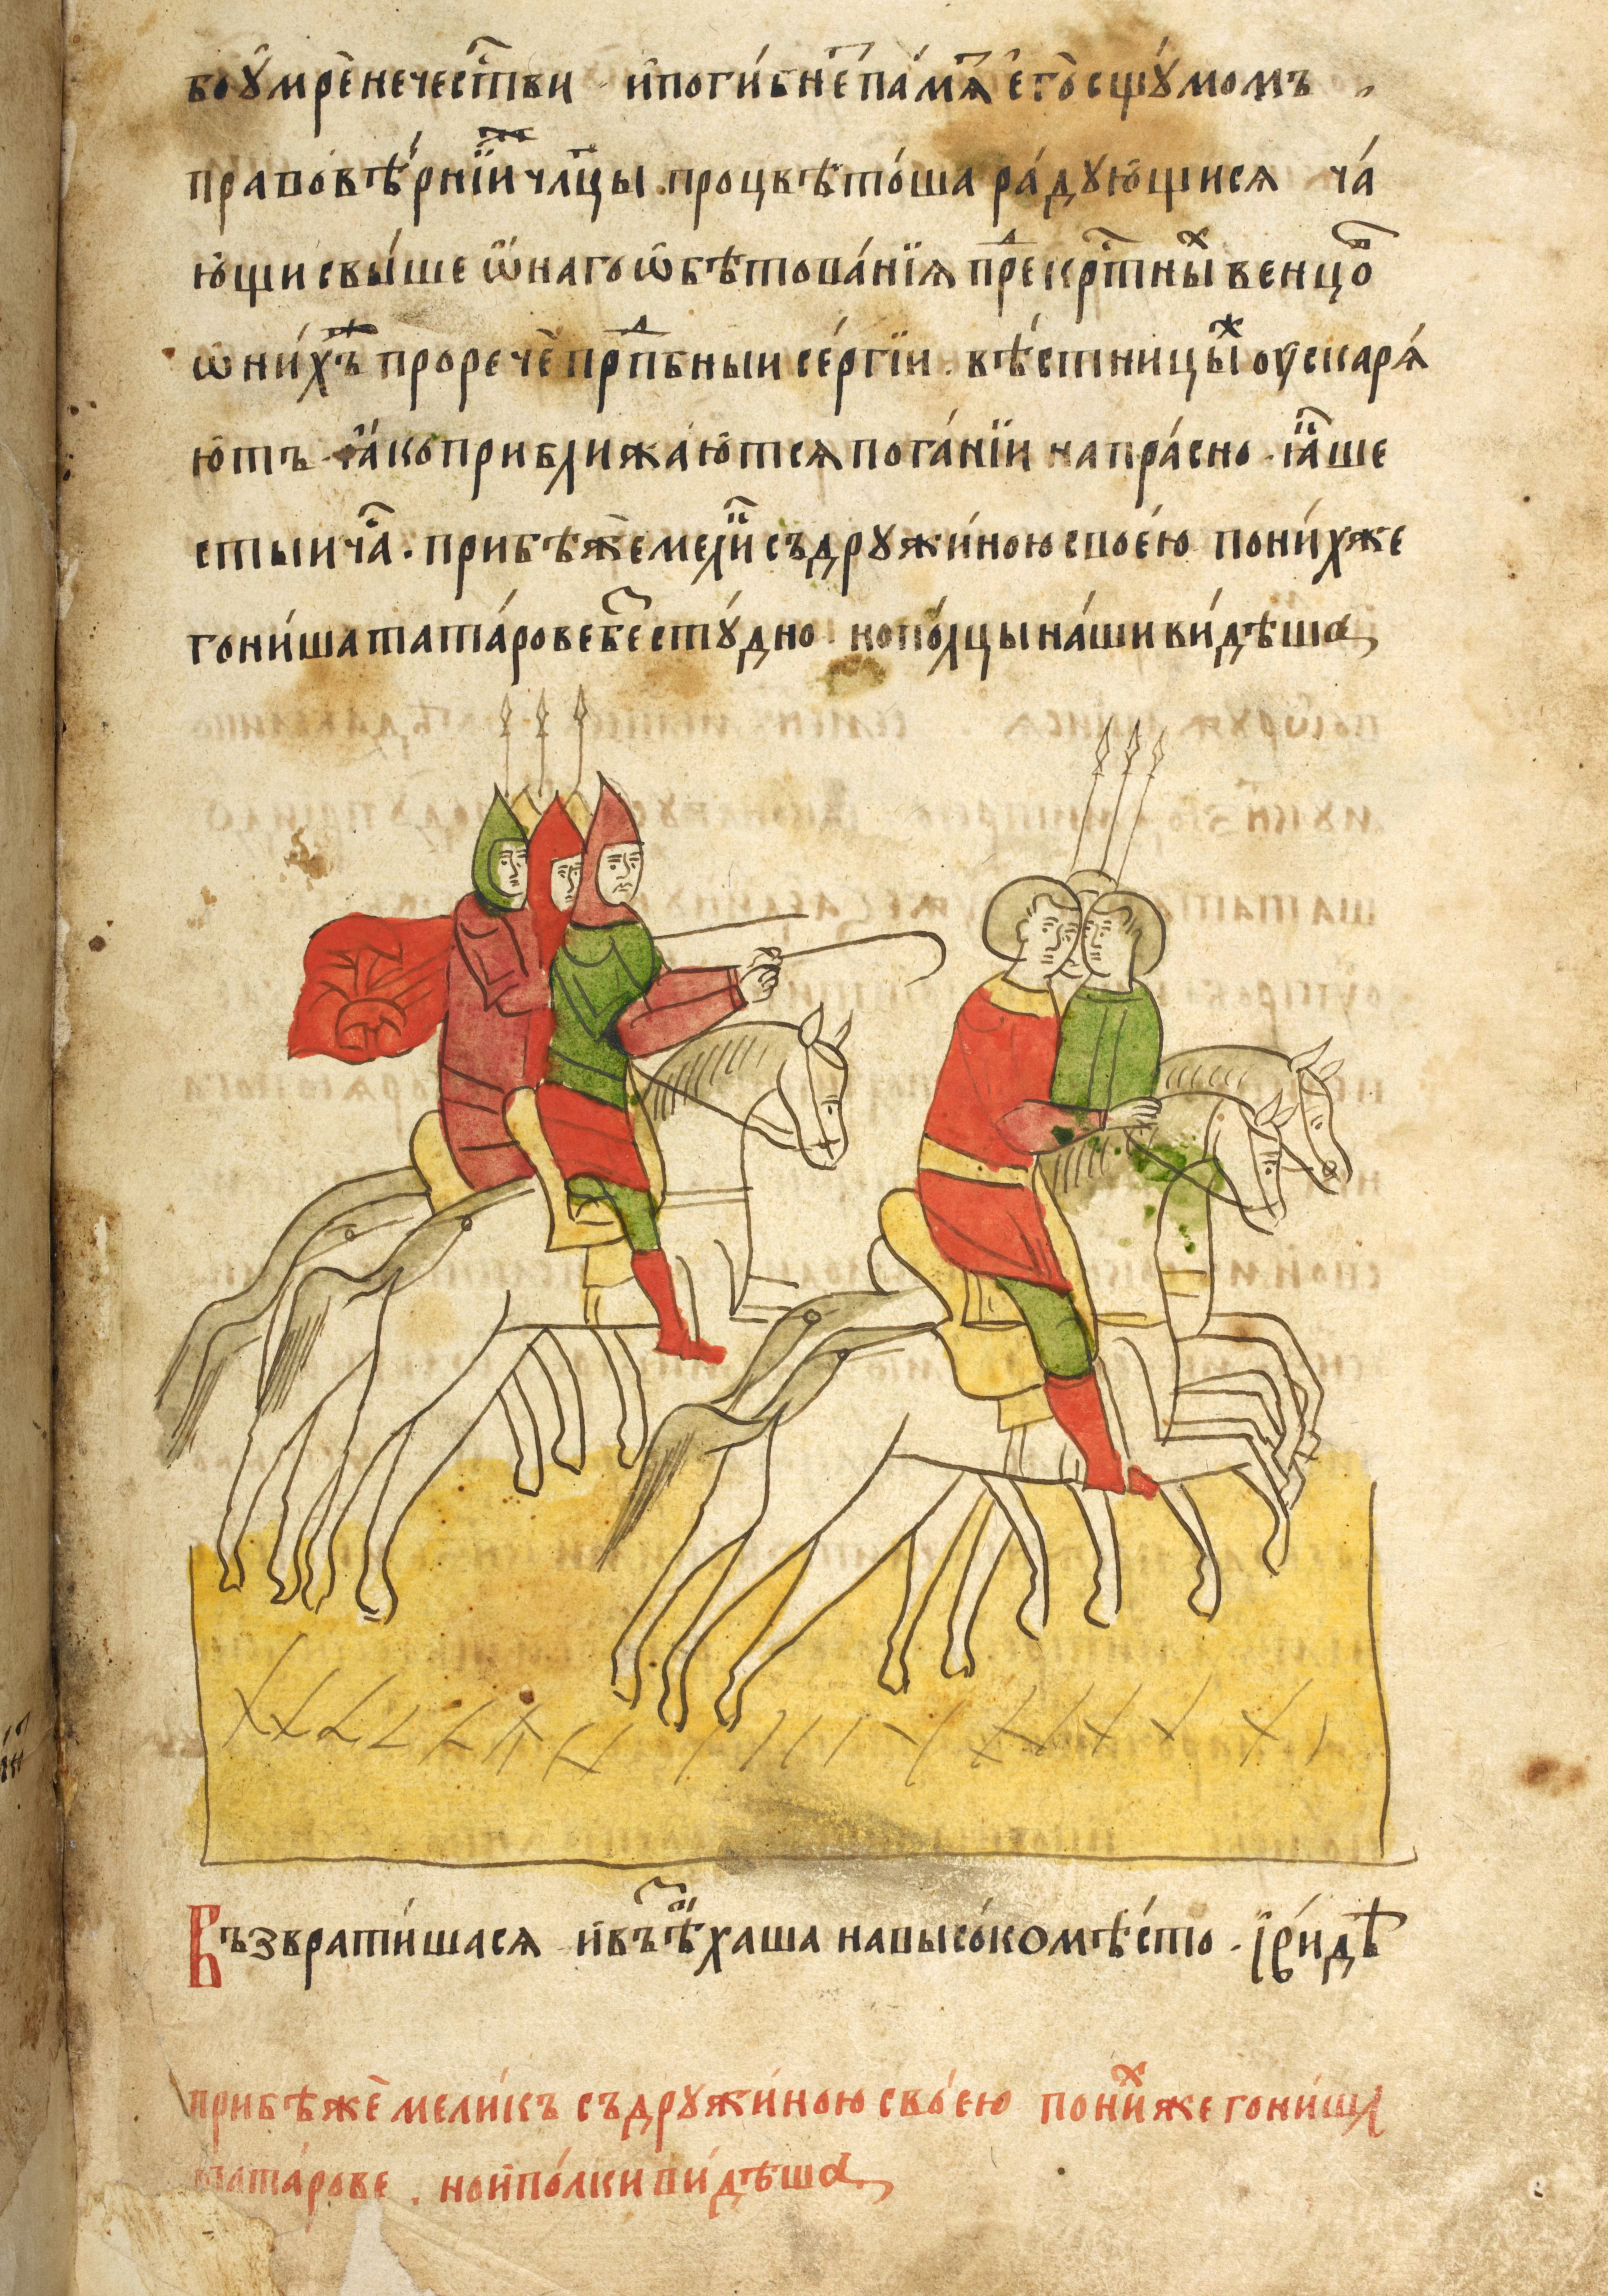 боу́мре̑нечести́ви и҆поги́бне̑па́мѧ е҆го̀сшꙋ́момъ
правовѣ́рнїи члцы. процвѣто́ша ра́дꙋющисѧ ча́
ющи свы́ше ѿнагоѡбѣтова́нїѧ прекртны́х венцо
ѡни́хъ прорече̑ прпбныи се́ргїи. вѣ́стницы́ж оускарѧ́
ю́тъ. ꙗ҆́коприближа́ютсѧ пога́нїи напра́сно. ꙗ҆́ше
стыи ча́. прибѣже̑мели съдрꙋжи́ною свое́ю пони́хже
гони́ша тата́рове бестꙋ́дно. нопо́лцы на́ши ви́дѣша
Възврати́шасѧ и҆въѣ́хаша навысо́ко мѣ́сто. ї҆ ри́дѣ
прибѣже̑ мели́къ съдрꙋжи́ною свое́ю пони́хже гони́ша
тата́рове. нои҆по́лки ви́дѣша